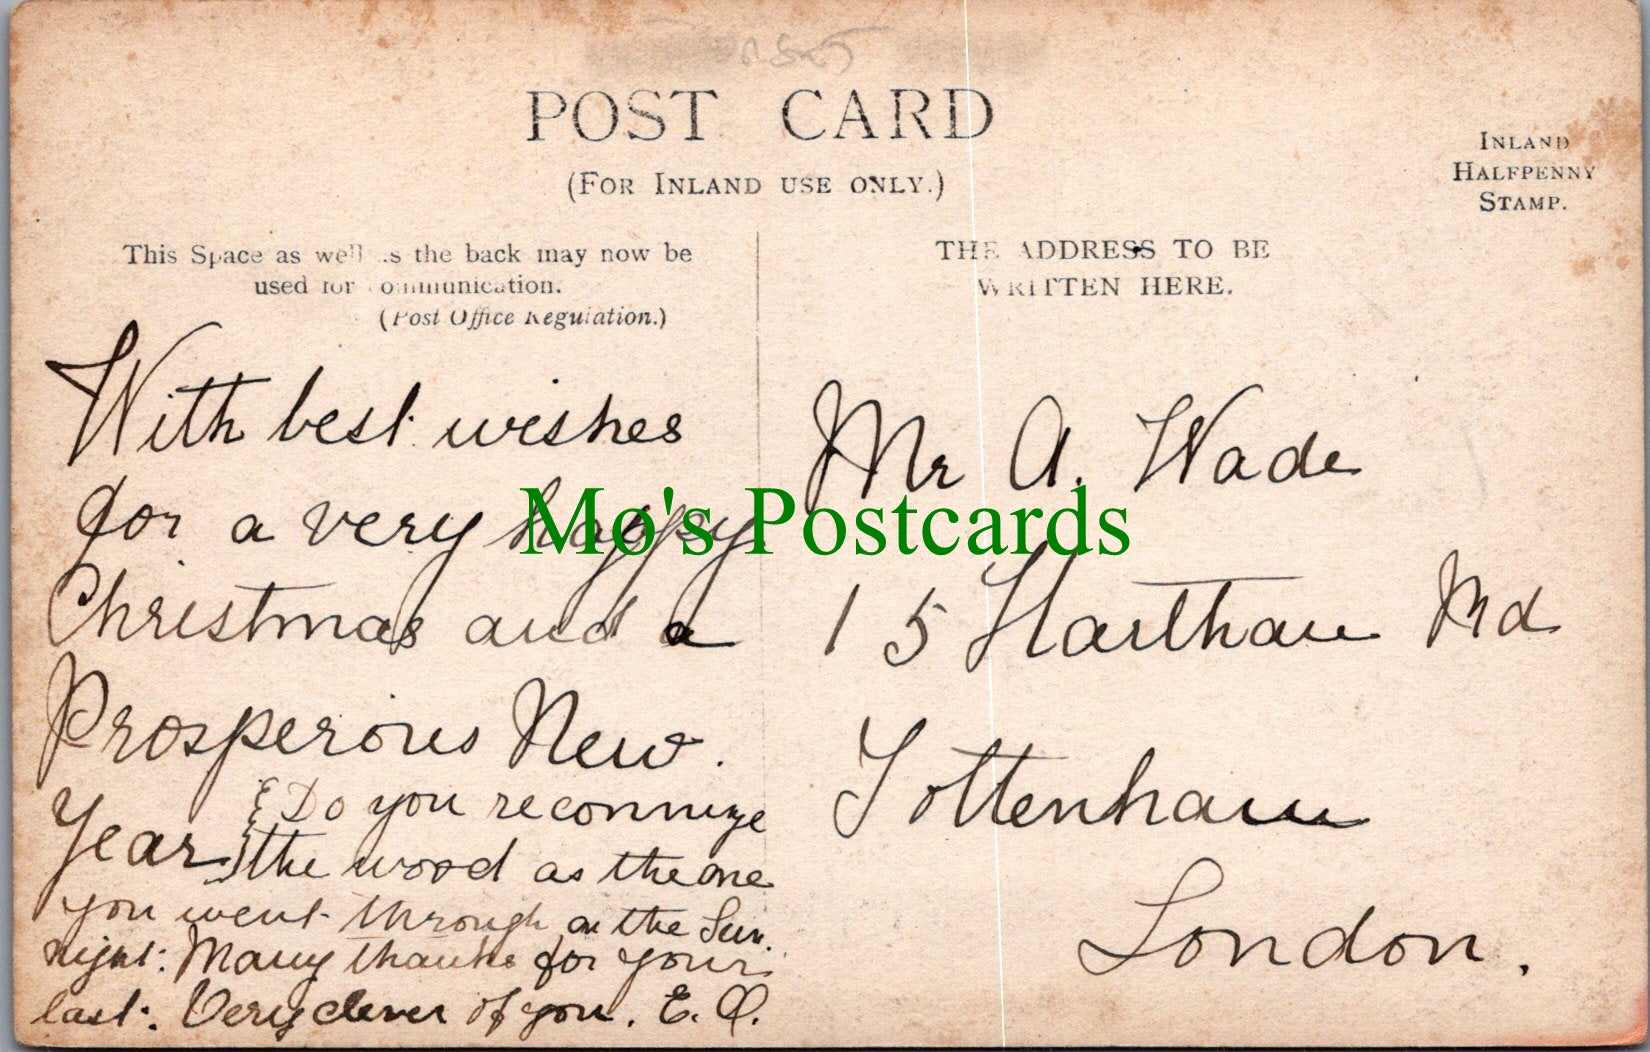 POST CARD
(FOR INLAND USE ONLY.)
INLAND
HALFPENNY
STAMP.
This Space as well as the back may now be
used for communication.
(Post Office Regulation.)
THE ADDRESS TO BE
WRITTEN HERE.
With best wishes
for a very happy
Christmas and a
Prosperous New
Year
Do you reconnize
the wood as the one
you went through on the Sun.
night. Many thanks for your
last. Very clever of you. E. Q.
Mr A. Wade
15 Hartham Rd
Tottenham
London.
Mo's Postcards